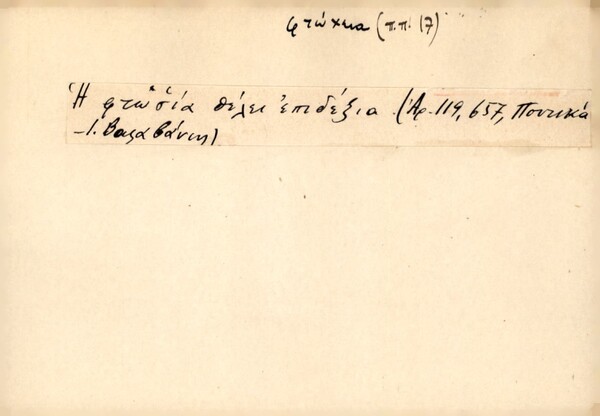 φτώχεια (π.π. 17)
Ἡ φτωσ̌ία θέλει ἐπιδέξια. (Ἀρ. 119, 657, Ποντικά
- Ι. Βαλαβάνης)